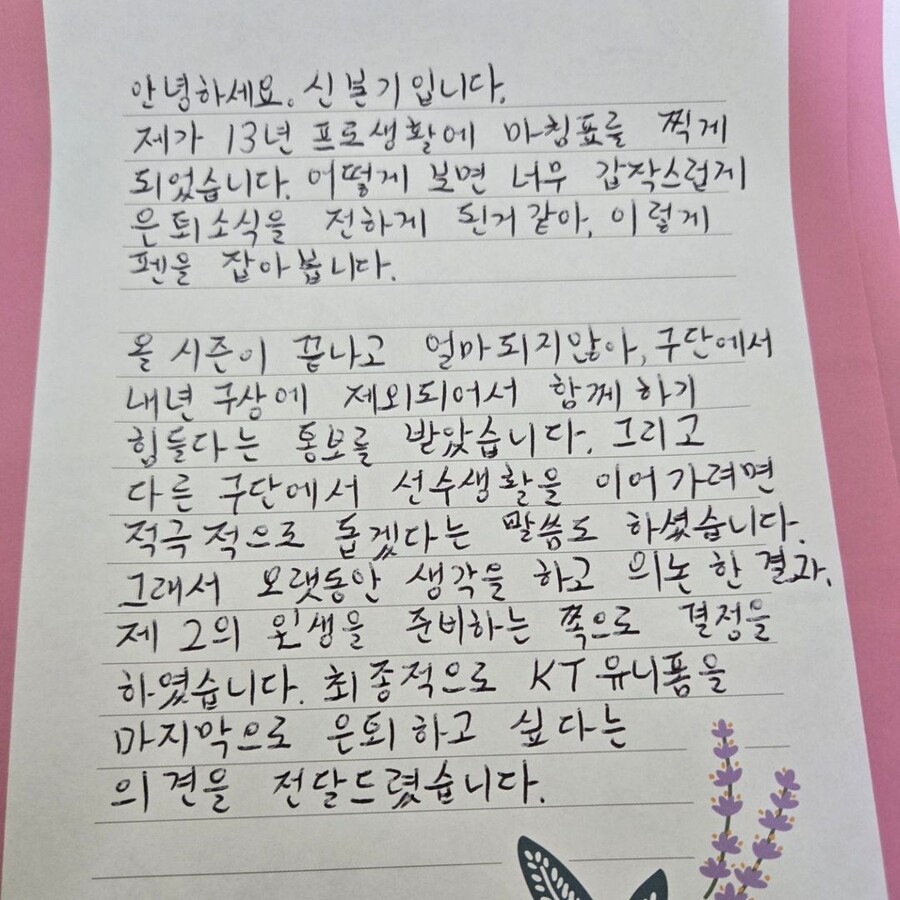 안녕하세요. 신본기입니다.
제가 13년 프로생활에 마침표를 찍게
되었습니다. 어떻게 보면 너무 갑작스럽게
은퇴소식을 전하게 된거같아, 이렇게
펜을 잡아봅니다.
올 시즌이 끝나고 얼마되지않아, 구단에서
내년 구상에 제외되어서 함께 하기
힘들다는 통보를 받았습니다. 그리고
다른 구단에서 선수생활을 이어가려면
적극적으로 돕겠다는 말씀도 하셨습니다.
그래서 오랫동안 생각을 하고 의논한 결과,
제 2의 인생을 준비하는 쪽으로 결정을
하였습니다. 최종적으로 KT 유니폼을
마지막으로 은퇴하고 싶다는
의견을 전달드렸습니다.